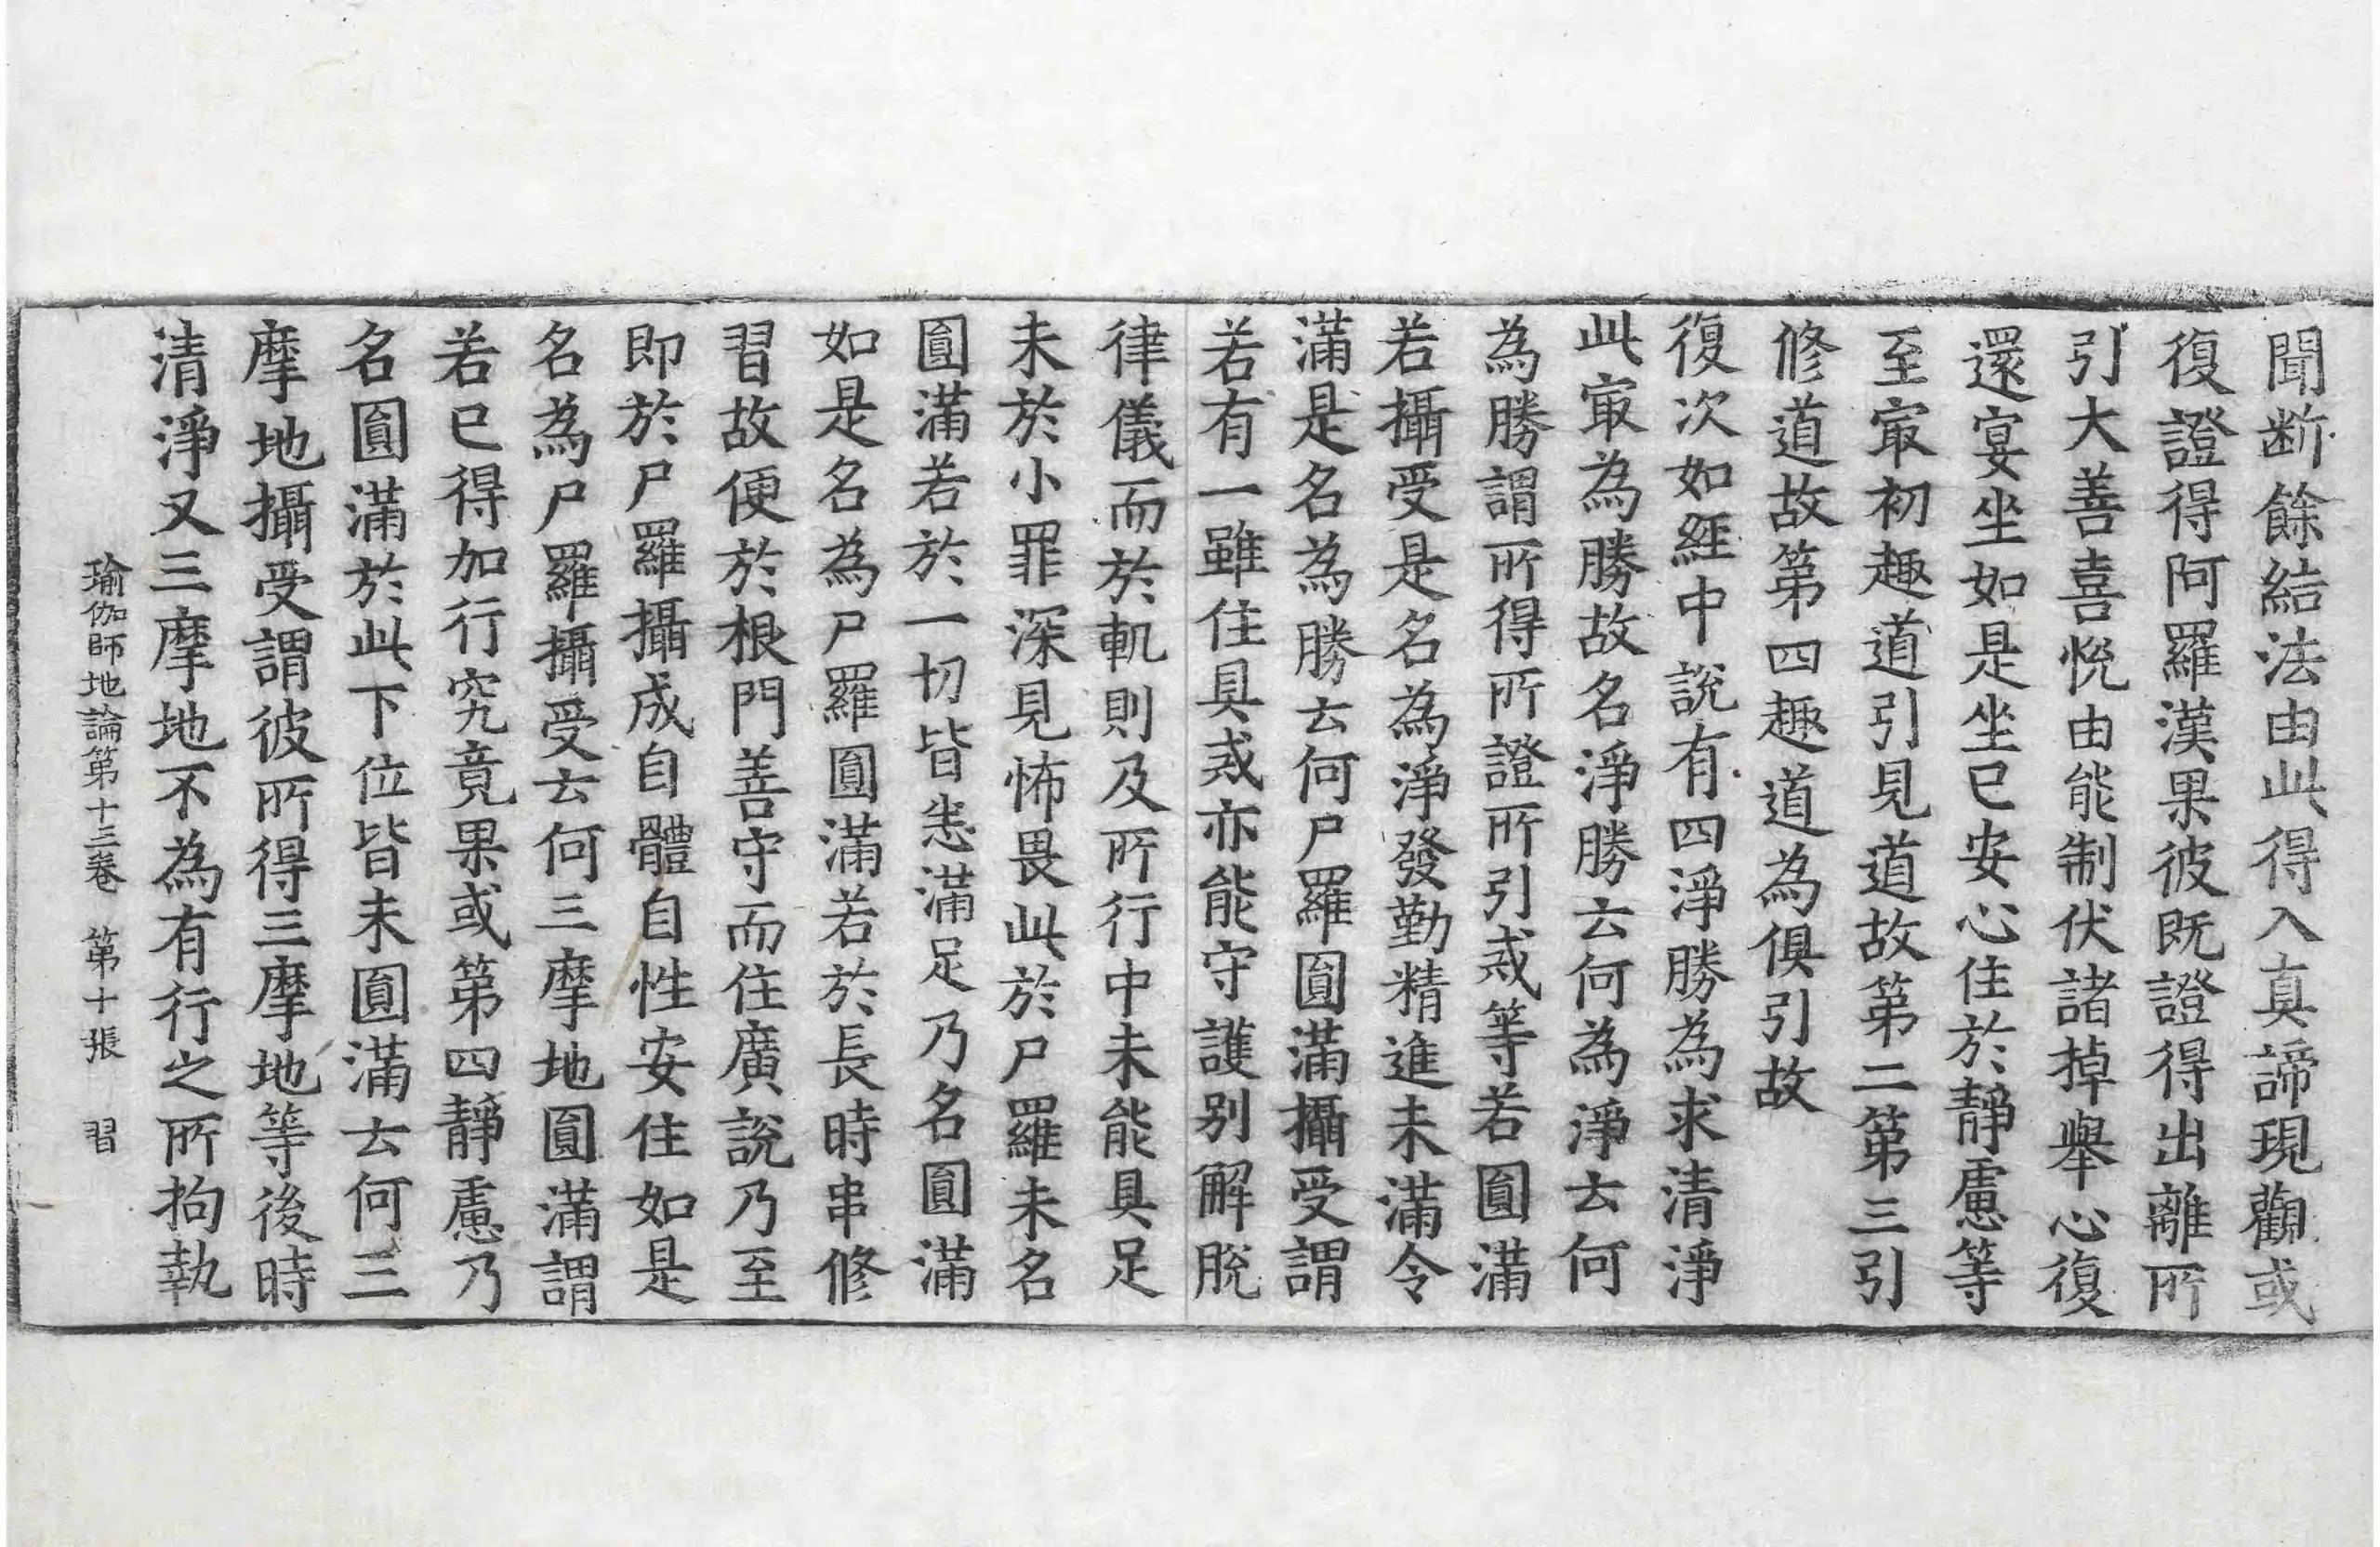 聞斷餘結法由此得入真諦現觀或
復證得阿羅漢果彼既證得出離所
引大善喜悅由能制伏諸掉舉心復
還宴坐如是坐已安心住於靜慮等
至㝡初趣道引見道故第二第三引
修道故第四趣道為俱引故
復次如經中說有四淨勝為求清淨
此㝡為勝故名淨勝云何為淨云何
為勝謂所得所證所引戒等若圓滿
若攝受是名為淨發勤精進未滿令
滿是名為勝云何尸羅圓滿攝受謂
若有一雖住具戒亦能守護別解脫
律儀而於軌則及所行中未能具足
未於小罪深見怖畏此於尸羅未名
圓滿若於一切皆悉滿足乃名圓滿
如是名為尸羅圓滿若於長時串修
習故便於根門善守而住廣說乃至
即於尸羅攝成自體自性安住如是
名為尸羅攝受云何三摩地圓滿謂
若已得加行究竟果或第四靜慮乃
名圓滿於此下位皆未圓滿云何三
摩地攝受謂彼所得三摩地等後時
清淨又三摩地不為有行之所拘執
瑜伽師地論第十三卷 第十張 習